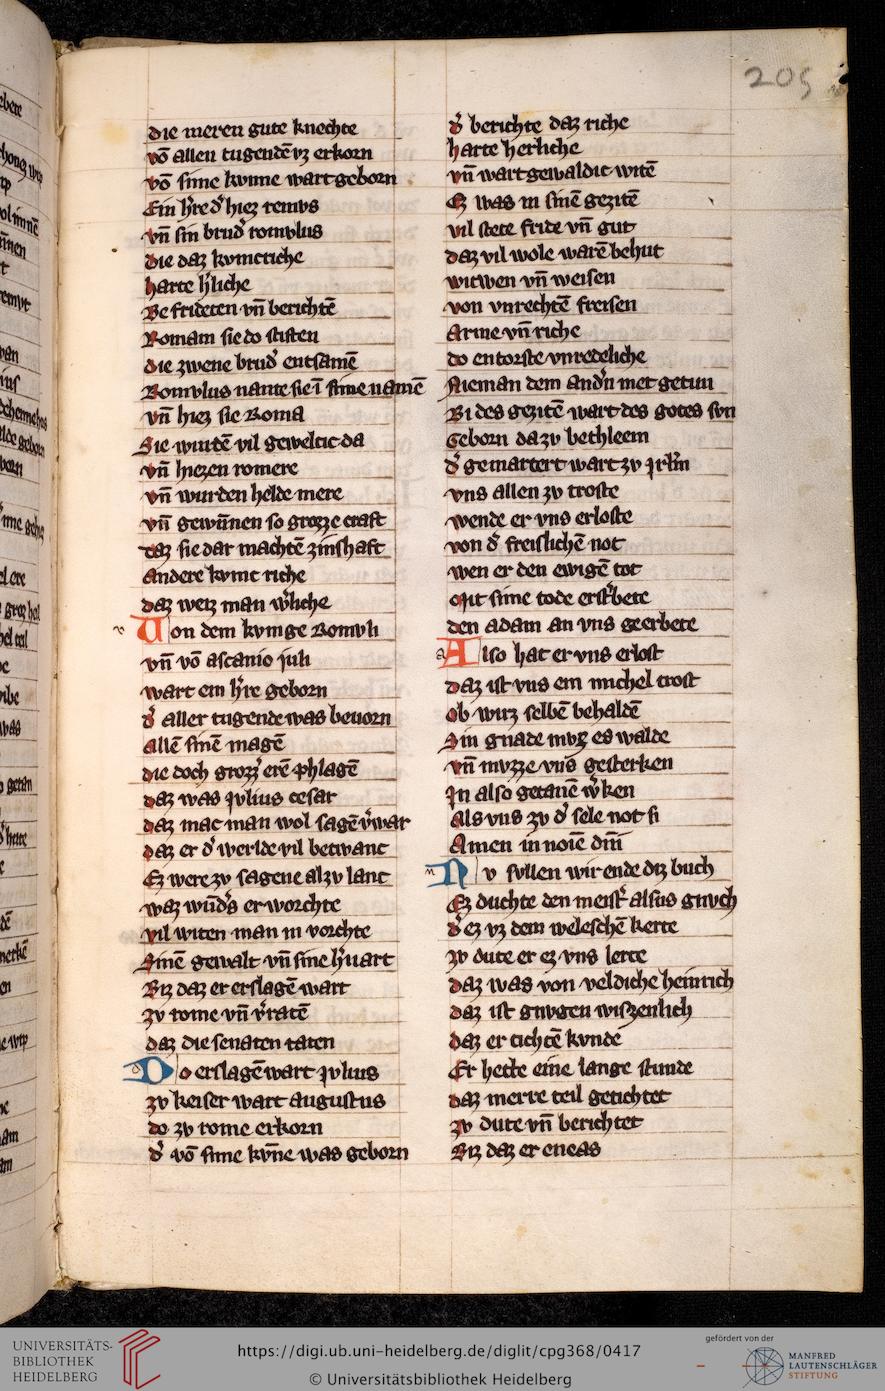 205
die meren gute knechte
võ allen tugendẽ vz erkorn
võ sime kvnne wart geborn
Ein h̓re d̓ hiez remvs
vñ sin brud̓ romvlus
die daz kvnicriche
harte h̓liche
Be frideten vñ berichtẽ
Romam sie do stiften
die zwene brud̓ entsamẽ
Romvlus nante sie ĩ sime namẽ
vñ hiez sie Roma
Sie wurdẽ vil geweltic da
vñ hiezen romere
vñ wurden helde mere
vñ gewũnen so grozze craft
daz sie dar machtẽ zinshaft
andere kvnic riche
daz weiz man w̓liche
Von dem kvnige Romvli
vñ võ ascanio juli
wart ein h̓re geborn
d̓ aller tugende was beuorn
allẽ sinẽ magẽ
die doch grozz̓ erẽ phlagẽ
daz was jvlius cesar
daz mac man wol sagẽ v̓war
daz er d̓ werlde vil betwanc
Ez were zv sagene al zv lanc
waz wũd̓s er worchte
vil witen man in vorchte
Sinẽ gewalt vñ sine h̓uart
Biz daz er erslagẽ wart
zv rome vñ v̓ratẽ
daz die senaten taten
Do erslagẽ wart jvlius
zv keiser wart augustus
do zv rome erkorn
d̓ võ sime kvñe was geborn
d̓ berichte daz riche
harte herliche
vñ wart gewaldic witẽ
Ez was in sinẽ gezitẽ
vil stete fride vñ gut
daz vil wole warẽ behut
witwen vñ weisen
von vnrechtẽ freisen
Arme vñ riche
do entorste vnredeliche
Nieman dem and̓n niet getun
Bi des gezitẽ wart des gotes svn
Geborn da zv bethleem
d̓ gemartert wart zv jrl̃m
vns allen zv troste
wende er vns erloste
von d̓ freislichẽ not
wen er den ewigẽ tot
Mit sime tode erst̓bete
den adam an vns geerbete
Also hat er vns erlost
daz ist vns ein michel trost
ob wirz selbẽ behaldẽ
Sin gnade mvz es walde
vñ mvzze vns gesterken
Jn also getanẽ w̓ken
Als vns zv d̓ sele not si
Amen in noĩe dñi
Nv svllen wir ende diz buch
Ez duchte den meist̓ alsus gnvch
d̓ ez vz dem weleschẽ kerte
zv dute er ez vns lerte
daz was von veldiche heinrich
daz ist gnvgen wiszenlich
daz er tichtẽ kvnde
Er hette eine lange stunde
daz merre teil getichtet
zv dute vñ berichtet
Biz daz er eneas
UNIVERSITÄTS-
BIBLIOTHEK
HEIDELBERG
https://digi.ub.uni-heidelberg.de/diglit/cpg368/0417
© Universitätsbibliothek Heidelberg
gefördert von der
MANFRED
LAUTENSCHLÄGER
STIFTUNG